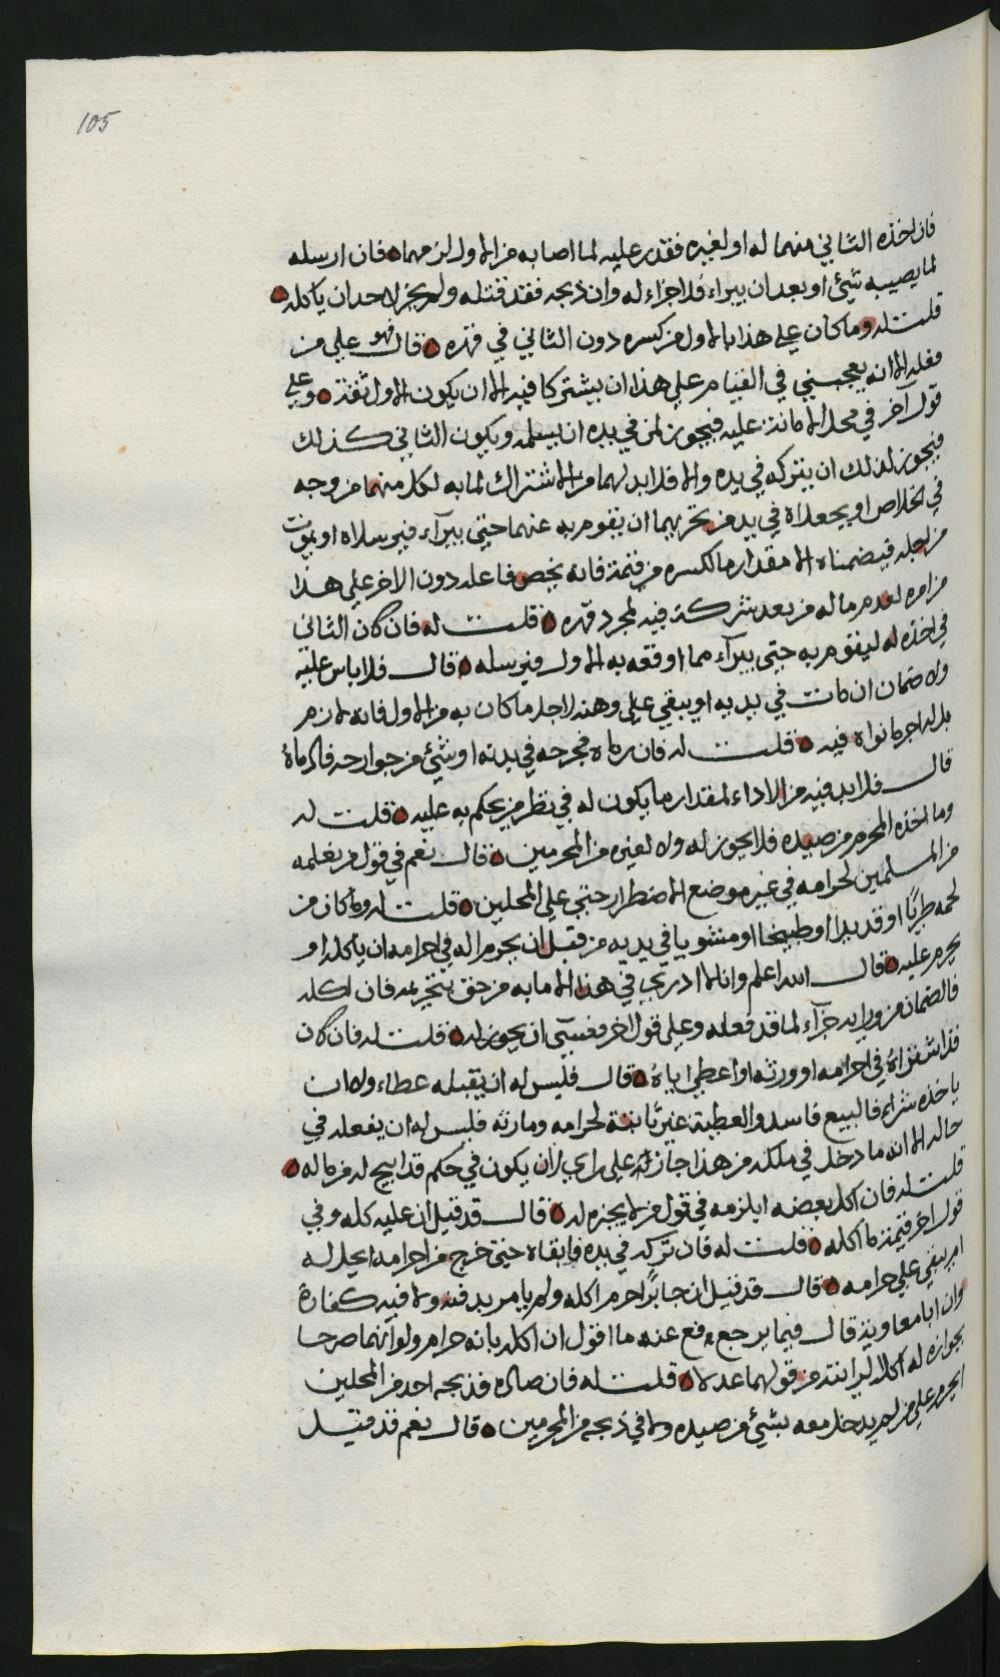 105
فان اخذه الثاني منهما له او لغيره فقدر عليه لما اصابه من الاول لزمهما فان ارسله
لما يصيبه شيئ او بعد ان يبراء فلا جزاء له وان ذبحه فقد قتله ولم يجز لاحد ان ياكله
قلت له وما كان على هذا بالاول من كسره دون الثاني في قهره قال فهو على من
فعله الا انه يعجبني في القيام على هذا ان يشتركا فيه الا ان يكون الاول ثقة وعلى
قول آخر في محل الامانة عليه فيجوز لمن في يده ان يسلمه ويكون الثاني كذلك
فيجوز لذلك ان يتركه في يده والا فلا بد لهما من الاشتراك لما به لكل منهما من وجه
في الخلاص او يجعلاه في يد من تحريهما ان يقوم به عنهما حتى يبرآء فيرسلاه او يموت
من اجله فيضمناه الا مقدار ما لكسره من قيمة فانه يخص فاعله دون الاخر على هذا
من امره لعدم ما له من بعد شركة فيه لمجرد قهره قلت له فان كان الثاني
في اخذه له ليقوم به حتى يبرآء مما اوقعه به الاول فيرسله قال فلا باس عليه
ولا ضمان ان مات في يديه او يبقي على وهنه لاجل ما كان به من الاول فانه لازم
بل له اجر ما نواه فيه قلت له فان رماه فجرحه في بدنه او شيئ من جوارحه فادماه
قال فلا بد فيه من الاداء لمقدار ما يكون له في نظر من يحكم به عليه قلت له
وما اخذه المحرم من صيده فلا يجوز له ولا لغيره من المحرمين قال نعم في قول من نعلمه
من المسلمين لحرامه في غير موضع الاضطرار حتى على المحلين قلت له وما كان من
لحمه طريًا او قديدا او طبيخا او مشويا في يديه من قبل ان يحرم اله في احرامه ان ياكله او
يحرم عليه قال الله اعلم وانا لا ادري في هذا الا ما به من حق بتحريمه فان اكله
فالضمان من ورايه جزآء لما قد فعله وعلى قول اخر فعسى ان يجوز له قلت له فان كان
قد اشتراه في احرامه او ورثه او اعطي اياه قال فليس له ان يقبله عطاء ولا ان
ياخذه شراء فالبيع فاسد والعطية غير ثابتة لحرامه وما رثه فليس له ان يفعله في
حاله الا انه ما دخل في ملكه من هذا جاز له على راي لان يكون في حكم قد ابيح له من ماله
قلت له فان اكل بعضه ايلزمه في قول من لا يجيزه له قال قد قيل ان عليه كله وفي
قول اخر قيمة ما اكله قلت له فان تركه في يده فابقاه حتى خرج من احرامه ايحل له
ام يبقي على حرامه قال قد قيل ان جابرًا حرم اكله ولم يامر بدفنه ولا فيه كفارة
وان ابا معاوية قال فيما يرجع رفع عنه ما اقول ان اكله بانه حرام ولو انهما صرحا
بجوازه له اكلا لرايته من قولهما عدلا قلت له فان صاده فذبحه احد من المحلين
ايحرم على من لم يدخل معه بشيئ من صيده ولا في ذبحه من المحرمين قال نعم قد قيل